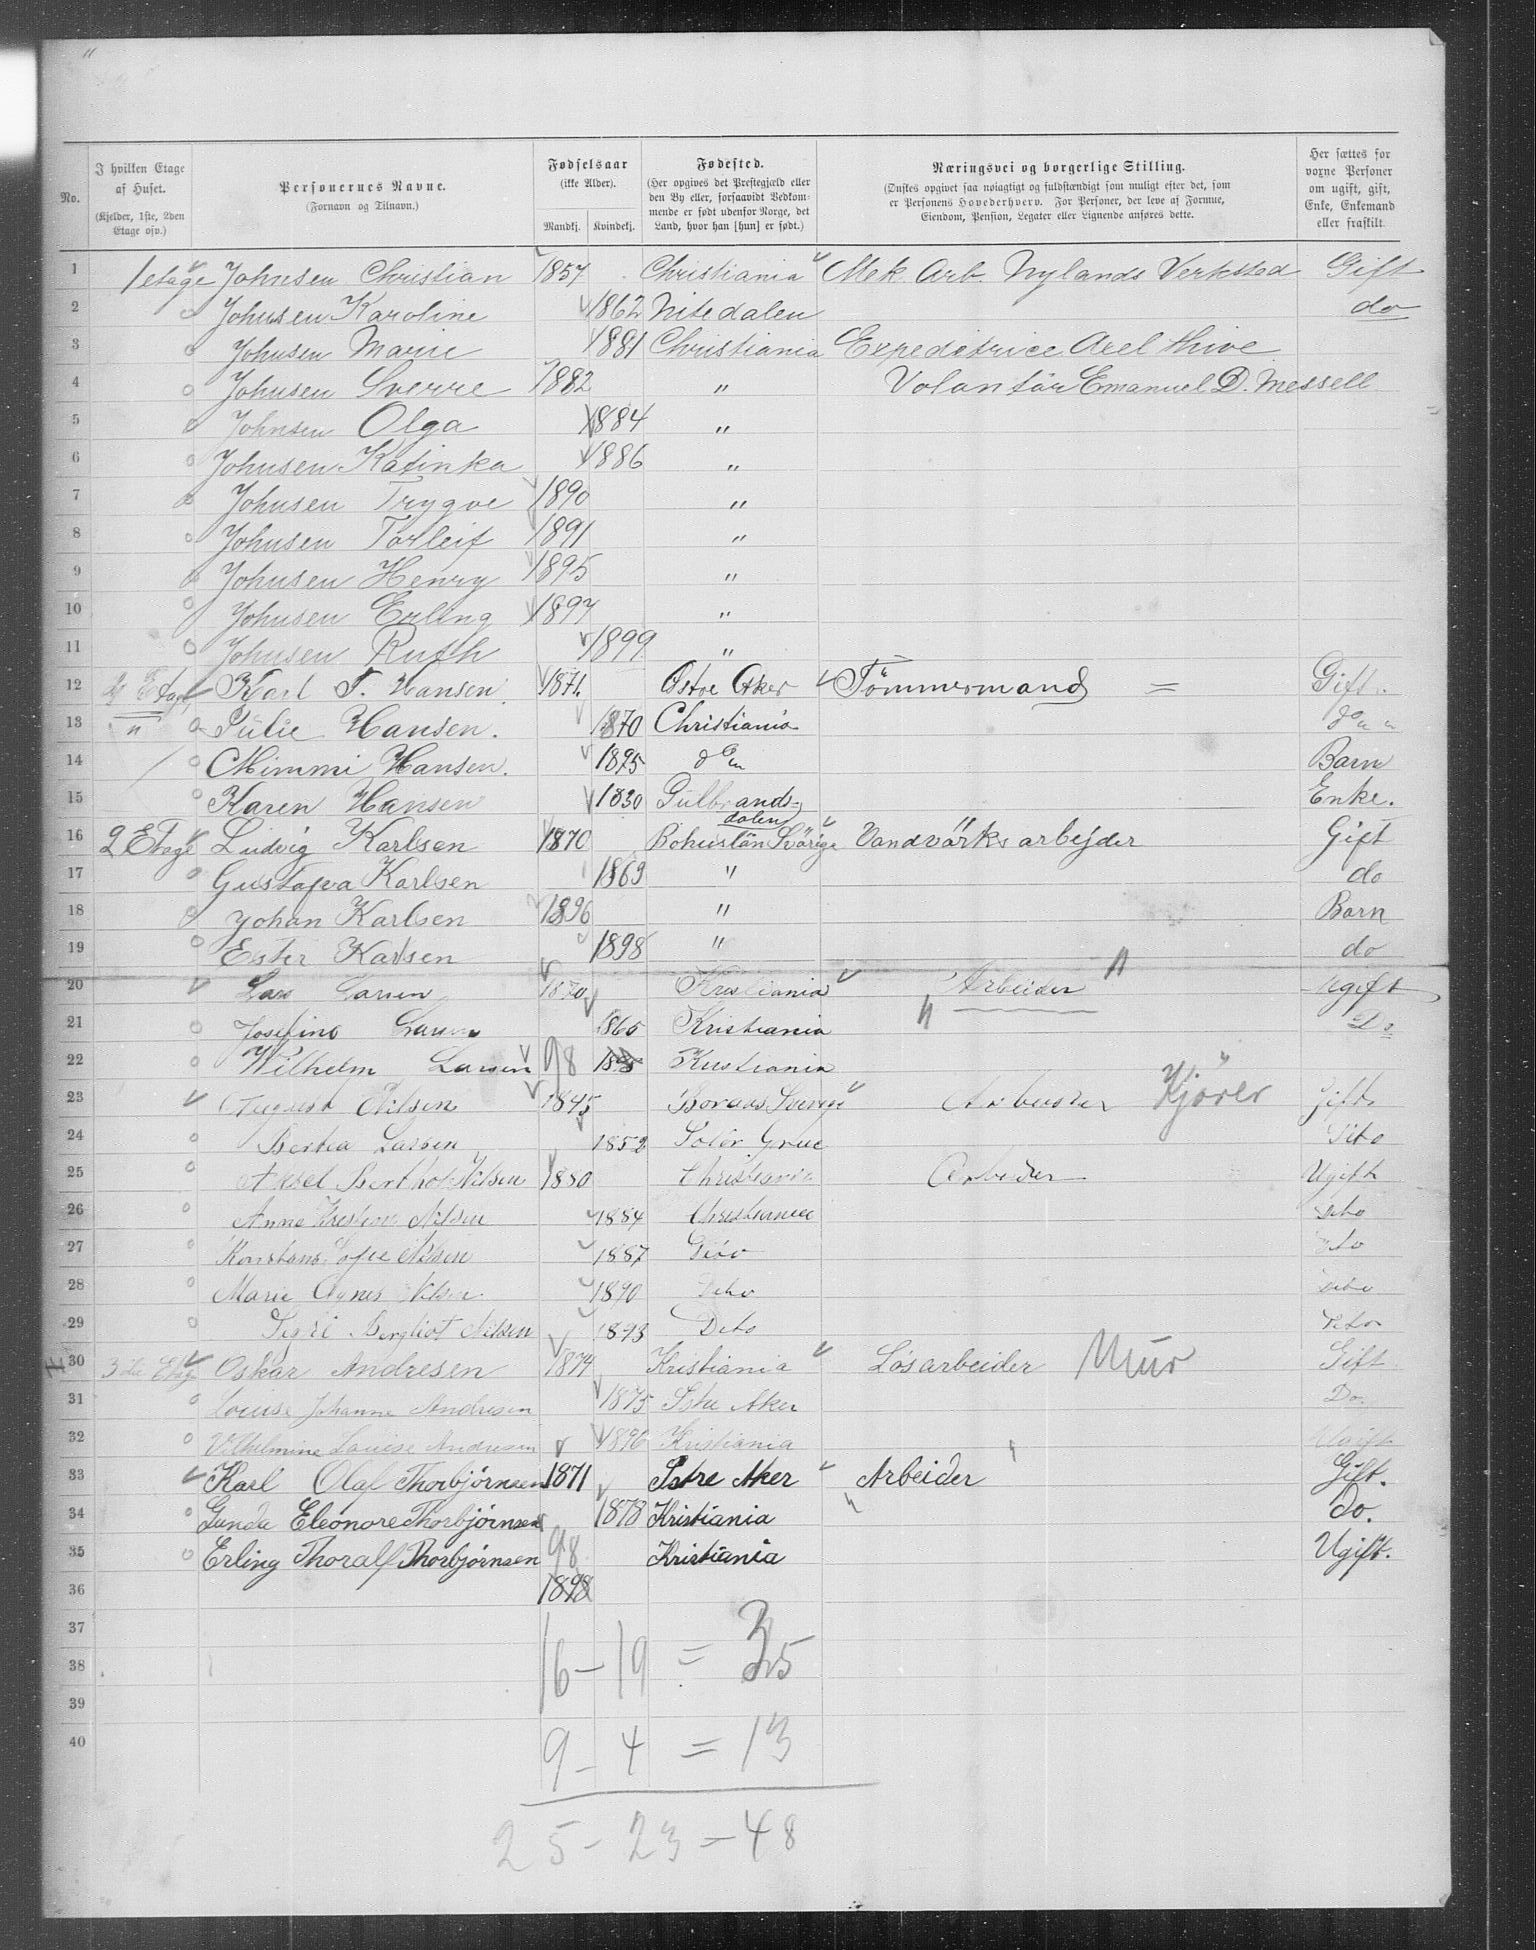 No. | I hvilken Etage af Huset. (Kjelder, 1ste, 2den Etage osv.) | Personernes Navne. (Fornavn og Tilnavn.) | Fødselsaar (ikke Alder). Mandkj. Kvindekj. | Fødested. (Her opgives det Prestegjæld eller den By eller, forsaavidt Vedkommende er født udenfor Norge, det Land, hvor han [hun] er født.) | Næringsvei og borgerlige Stilling. (Ønskes opgivet saa nøiagtigt og fuldstændigt som muligt efter det, som er Personens Hovederhverv. For Personer, der leve af Formue, Eiendom, Pension, Legater eller Lignende anføres dette.) | Her sættes for voxne Personer om ugift, gift, Enke, Enkemand eller fraskilt.
1 1 etage Johnsen Christian 1857 Christiania Mek. Arb. Nylands Verksted Gift
2 Johnsen Karoline 1862 Nitedalen do
3 Johnsen Marie 1881 Christiania Expeditrice Axel Hiive
4 Johnsen Sverre 1882 " Volantär Emanuel D. Messell
5 Johnsen Olga 1884 "
6 Johnsen Katinka 1886 "
7 Johnsen Trygve 1890 "
8 Johnsen Torleif 1891 "
9 Johnsen Henry 1895 "
10 Johnsen Erling 1897 "
11 Johnsen Ruth 1899 "
12 Etage Karl T. Hansen 1871 Østre Aker Tömmermand = Gift.
13 " Julie Hansen. 1870 Christiania do "
14 Mimmi Hansen. 1895 do Barn
15 Karen Hansen 1830 Gulbrandsdalen Enke.
16 2 Etage Ludvig Karlsen 1870 Bohuslän Svärige Vandvärks arbejder Gift
17 Gustafva Karlsen 1863 " do
18 Johan Karlsen 1896 " Barn
19 Ester Karlsen 1898 " do
20 Lars Larsen 1870 Kristiania Arbeider Ugift
21 Josefine Larsen 1865 Kristiania Do
22 Wilhelm Larsen 98 Kristiania
23 August Nilsen 1845 Boraas Sverige Arbeider Kjører Gift
24 Bertea Larsen 1852 Solør Grue Dito
25 Aksel Berthol Nilsen 1880 Christiania Arbeider Ugift
26 Anna Nilsen 1884 Christiania Dito
27 Konstans Sofie Nilsen 1887 Dito
28 Marie Agnes Nilsen 1890 Dito Dito
29 Sigri Bergliot Nilsen 1893 Dito Dito
30 3die Etage Oskar Andresen 1874 Kristiania Løsarbeider Mur Gift
31 Louise Johanne Andresen 1875 Østre Aker Do.
32 Vilhelmine Louise Andresen 1896 Kristiania Ugift
33 Karl Olaf Thorbjörnsen 1871 Østre Aker Arbeider Gift.
34 Gunda Eleonore Thorbjörnsen 1878 Kristiania do.
35 Erling Thoralf Thorbjörnsen 98 Kristiania Ugift.
36 1898
37
38 16 – 19 = 35
39
40 9 – 4 = 13
25 – 23 = 48